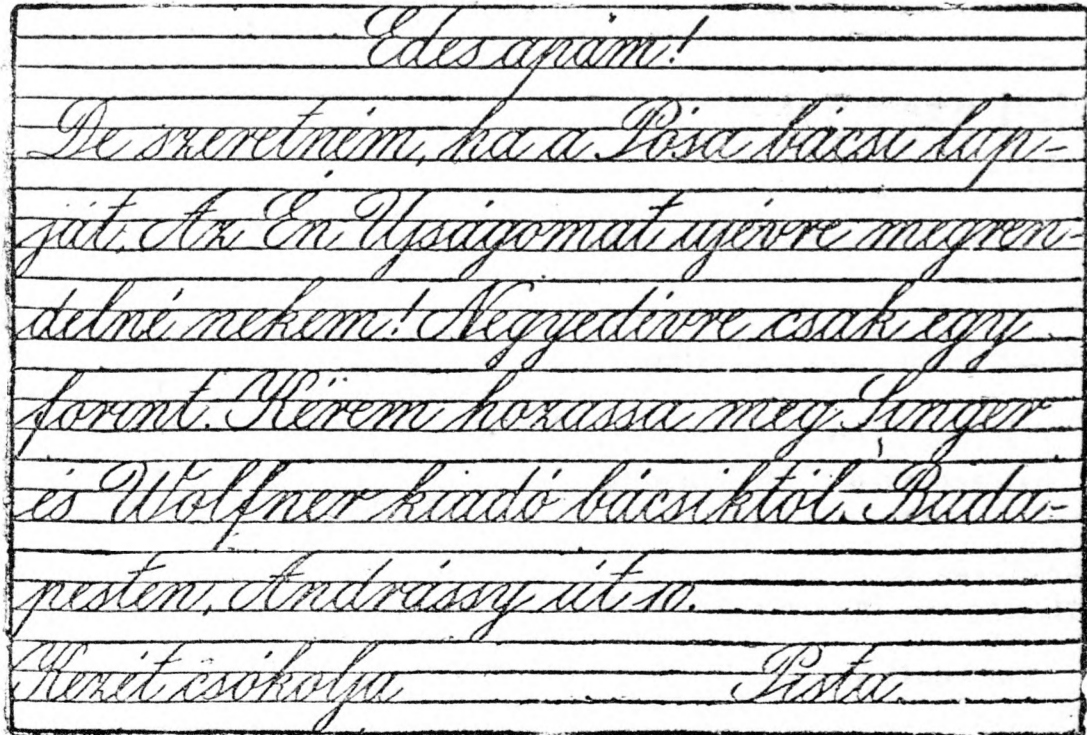 Édes apám!
De szeretném, ha a Pósa bácsi lap-
ját, Az Én Ujságomat ujévre megren-
delné nekem! Negyedévre csak egy
forint. Kérem hozassa meg Singer
és Wolfner kiadó bácsiktól, Buda-
pesten, Andrássy út 10.
Kezét csókolja Pista.